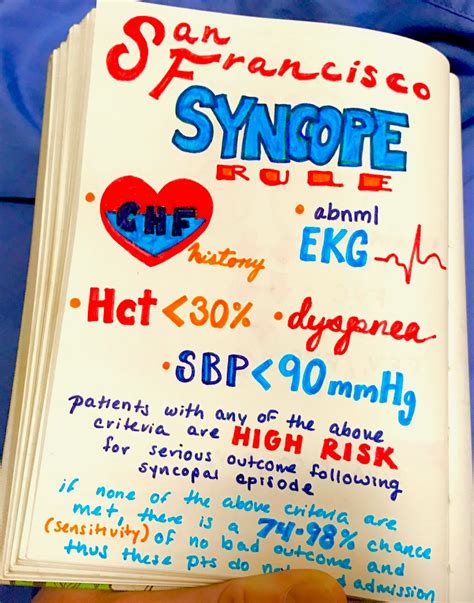 San
Francisco
SYNCOPE
RULE
• CHF history
• abnml
EKG
• Hct <30%
• dyspnea
• SBP <90 mmHg
patients with any of the above
criteria are HIGH RISK
for serious outcome following
syncopal episode
if none of the above criteria are
met, there is a 74-98% chance
(sensitivity) of no bad outcome and
thus these pts do admission